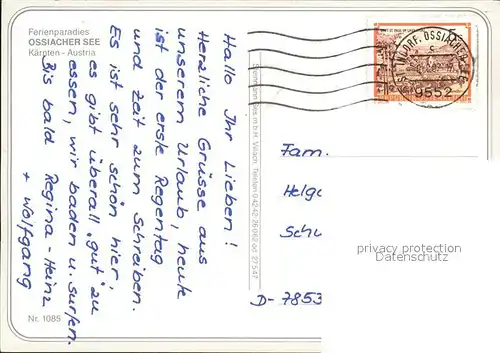 Ferienparadies
OSSIACHER SEE
Kärnten - Austria
Hallo Ihr Lieben!
Herzliche Grüsse aus
unserem Urlaub, heute
ist der erste Regentag
und Zeit zum Schreiben.
Es ist sehr schön hier,
es gibt überall "gut" zu
essen, wir baden u. surfen.
Bis bald Regina - Heinz
+ Wolfgang
Nr. 1085
OSSIACHER
9552
Fam.
Helg
Schu
D-7853
privacy protection
Datenschutz